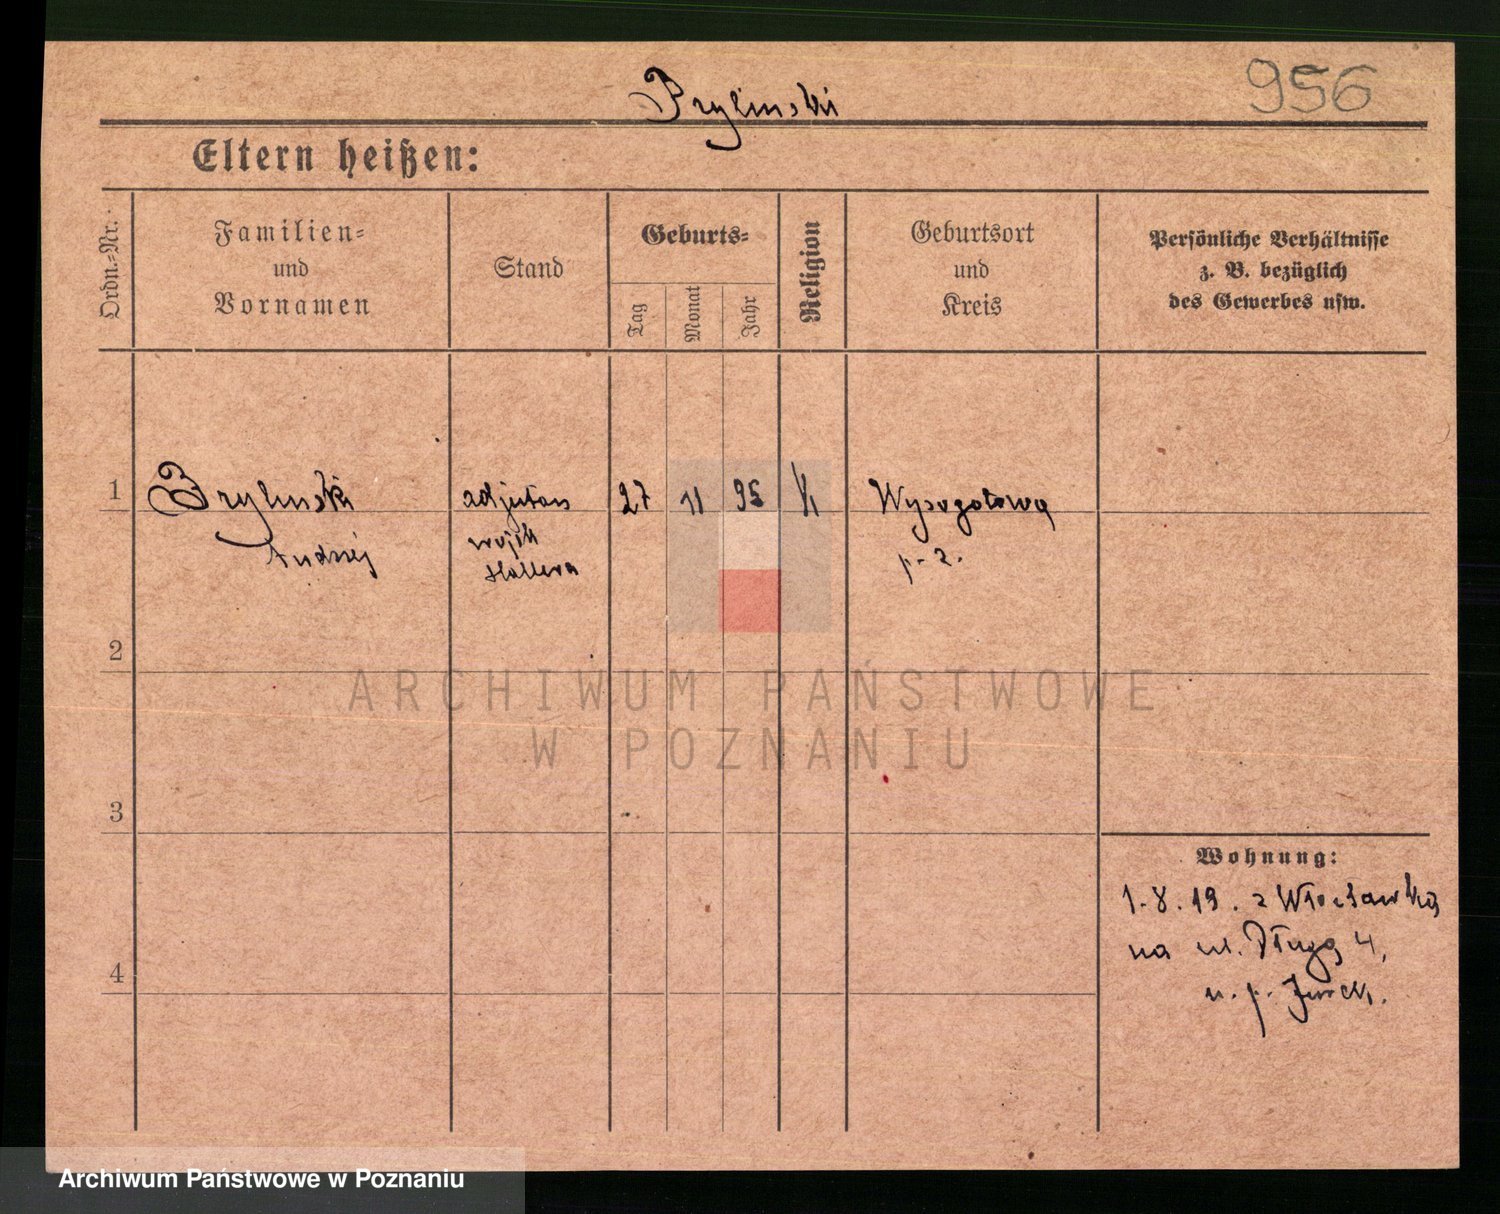 956
Brylinski
Eltern heißen:
Ordn.-Nr.
Familien-
und
Vornamen
Stand
Geburts-
Tag
Monat
Jahr
Religion
Geburtsort
und
Kreis
Persönliche Verhältnisse
z. B. bezüglich
des Gewerbes usw.
1
Brylinski
Andrzej
adjutan
wojsk
Hallera
27
11
95
k
Wysogotowo
p. z.
2
3
4
Wohnung:
1.8.19. z Włocławka
na ul. Długą 4,
u. p.
ARCHIWUM PAŃSTWOWE
W POZNANIU
Archiwum Państwowe w Poznaniu